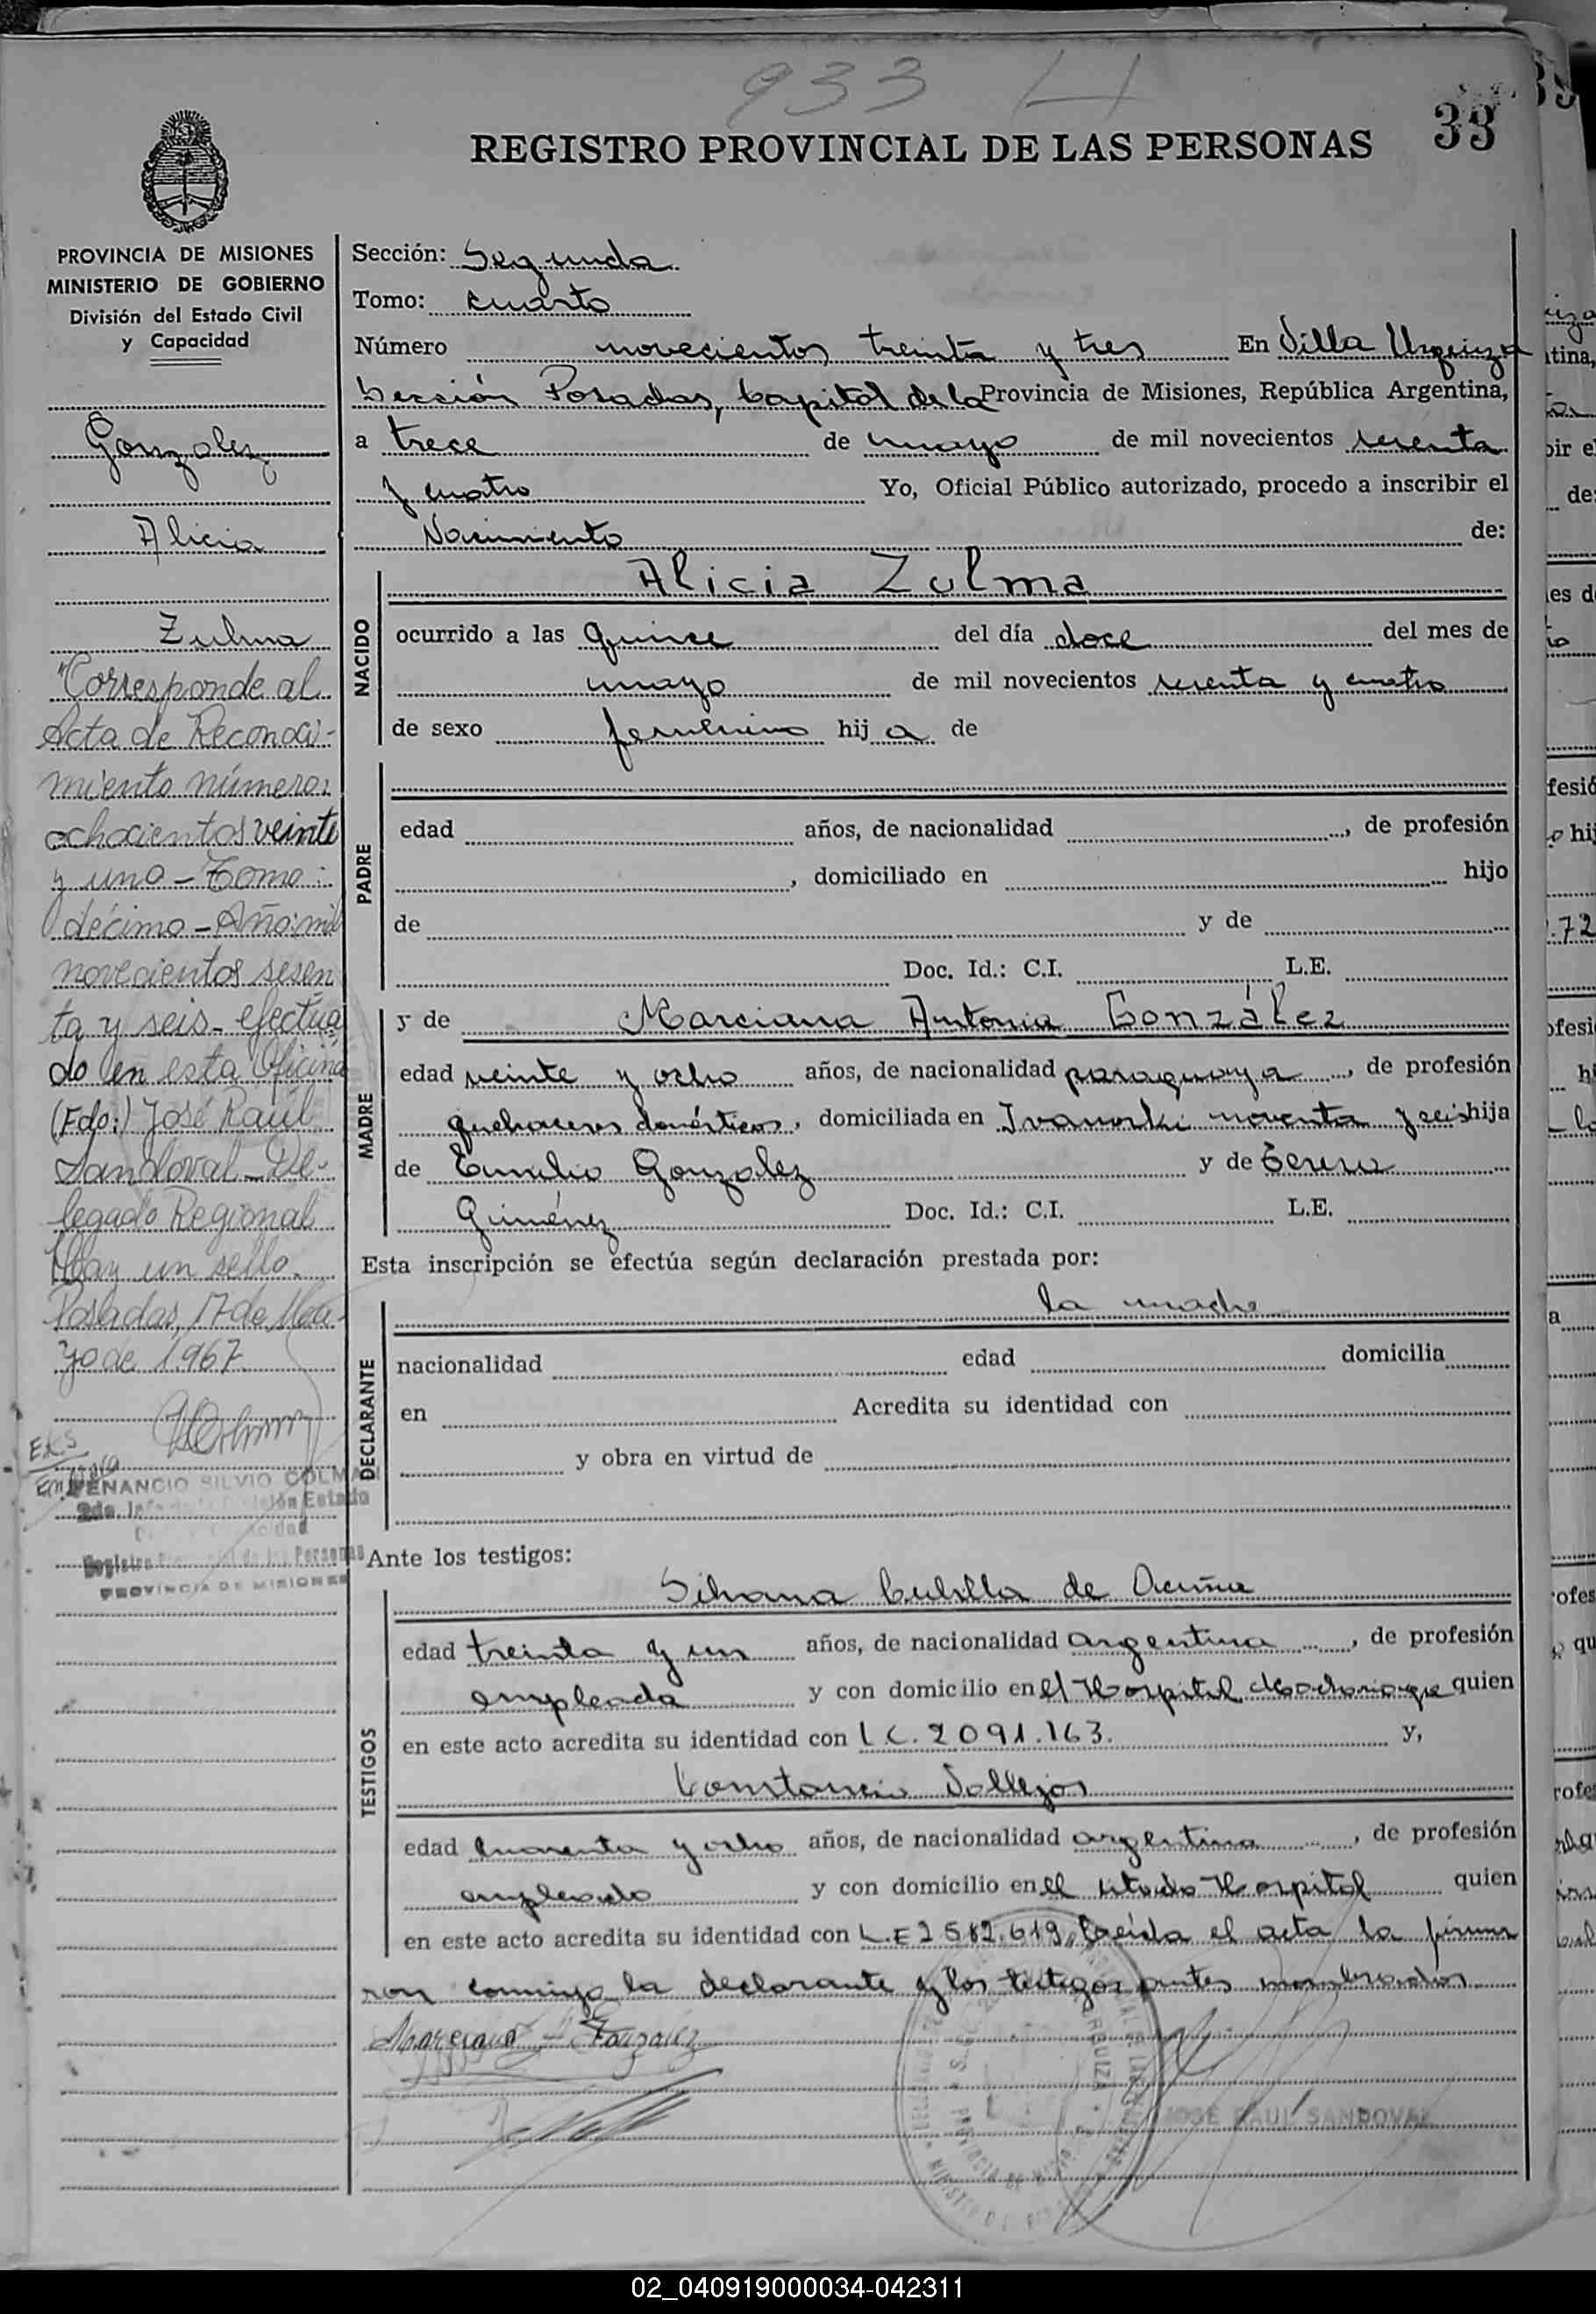 933 H
REGISTRO PROVINCIAL DE LAS PERSONAS
33
PROVINCIA DE MISIONES
MINISTERIO DE GOBIERNO
División del Estado Civil
y Capacidad
Gonzalez
Alicia
Zulma
"Corresponde al
Acta de Reconoci-
miento número:
ochocientos veinte
y uno - Tomo:
décimo - Año: mil
novecientos sesen
ta y seis - efectua
do en esta Oficina
(Fdo:) José Raúl
Sandoval - De-
legado Regional
Hay un sello.
Posadas, 17 de Ma-
yo de 1.967.
VENANCIO SILVIO COLMAN
PROVINCIA DE MISIONES
Sección: Segunda
Tomo: cuarto
Número novecientos treinta y tres En Villa Urquiza
Sección Posadas, Capital de la Provincia de Misiones, República Argentina,
a trece de mayo de mil novecientos sesenta
y cuatro Yo, Oficial Público autorizado, procedo a inscribir el
Nacimiento de:
NACIDO
Alicia Zulma
ocurrido a las quince del día doce del mes de
mayo de mil novecientos sesenta y cuatro
de sexo femenino hij a de
PADRE
edad años, de nacionalidad , de profesión
, domiciliado en hijo
de y de
Doc. Id.: C.I. L.E.
MADRE
y de Marciana Antonia González
edad veinte y ocho años, de nacionalidad paraguaya , de profesión
quehaceres domésticos, domiciliada en Ivanoski noventa y seis hija
de Emilio Gonzalez y de Teresa
Giménez Doc. Id.: C.I. L.E.
Esta inscripción se efectúa según declaración prestada por:
DECLARANTE
la madre
nacionalidad edad domicilia
en Acredita su identidad con
y obra en virtud de
Ante los testigos:
TESTIGOS
Silvana Cubilla de Acuña
edad treinta y un años, de nacionalidad argentina , de profesión
empleada y con domicilio en el Hospital quien
en este acto acredita su identidad con L C. 2 091.163. y,
Constancio Vallejos
edad cuarenta y ocho años, de nacionalidad argentina , de profesión
empleado y con domicilio en el citado Hospital quien
en este acto acredita su identidad con L.E 2 582.619, Leída el acta la firma
ron conmigo la declarante y los testigos antes nombrados
JOSE RAUL SANDOVAL
02_040919000034-042311